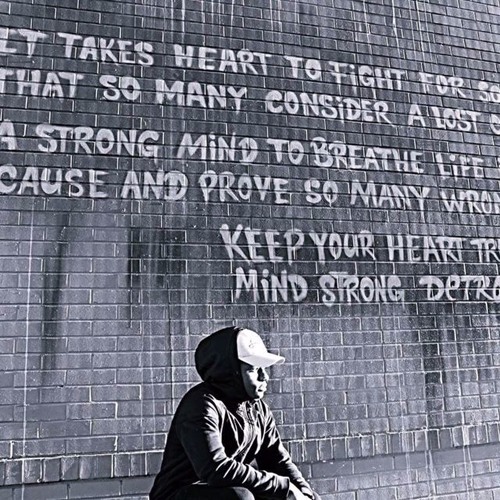 IT TAKES HEART TO FIGHT FOR
THAT SO MANY CONSIDER A LOST
A STRONG MIND TO BREATHE LIFE
CAUSE AND PROVE SO MANY
KEEP YOUR HEART
MIND STRONG